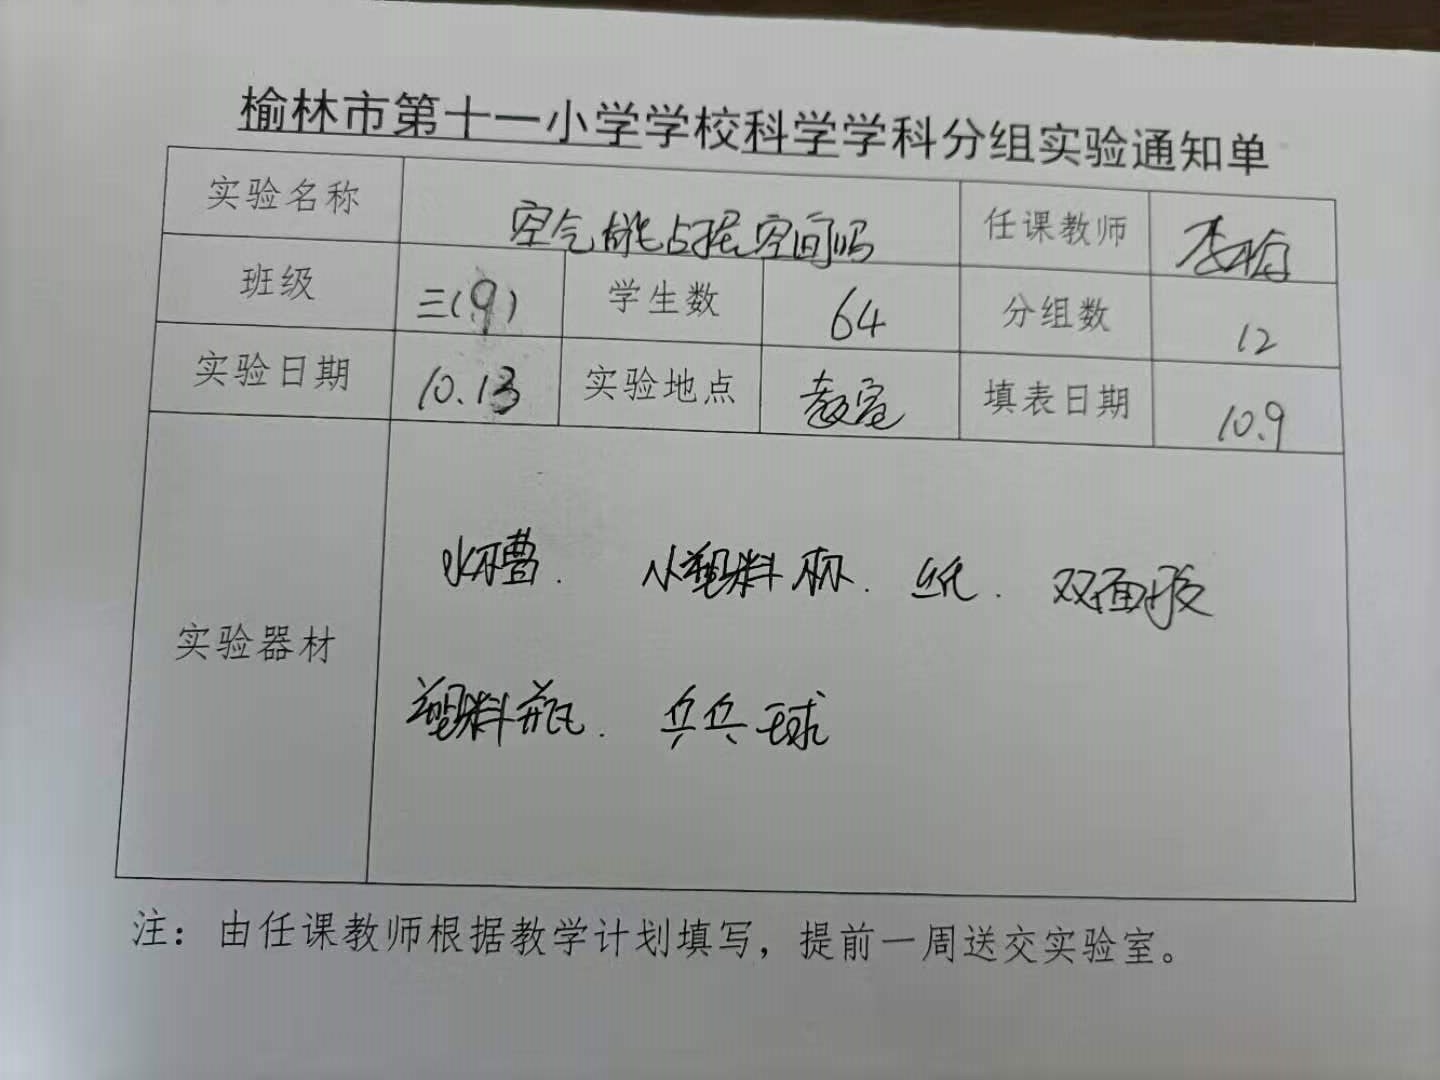 榆林市第十一小学学校科学学科分组实验通知单
实验名称 空气能占据空间吗 任课教师 李
班级 三(9) 学生数 64 分组数 12
实验日期 10.13 实验地点 教室 填表日期 10.9
实验器材
水槽. 小塑料杯. 纸. 双面胶
塑料瓶. 乒乓球
注：由任课教师根据教学计划填写，提前一周送交实验室。